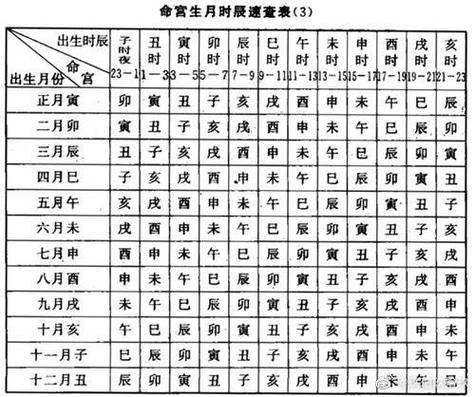 命宮生月时辰速查表(3)
出生时辰 子 丑 寅 卯 辰 巳 午 未 申 酉 戌 亥
命 时 时 时 时 时 时 时 时 时 时 时 时
宮 夜
出生月份 23—1 1—3 3—5 5—7 7—9 9—11 11—13 13—15 15—17 17—19 19—21 21—23
正月寅 卯 寅 丑 子 亥 戌 酉 申 未 午 巳 辰
二月卯 寅 丑 子 亥 戌 酉 申 未 午 巳 辰 卯
三月辰 丑 子 亥 戌 酉 申 未 午 巳 辰 卯 寅
四月巳 子 亥 戌 酉 申 未 午 巳 辰 卯 寅 丑
五月午 亥 戌 酉 申 未 午 巳 辰 卯 寅 丑 子
六月未 戌 酉 申 未 午 巳 辰 卯 寅 丑 子 亥
七月申 酉 申 未 午 巳 辰 卯 寅 丑 子 亥 戌
八月酉 申 未 午 巳 辰 卯 寅 丑 子 亥 戌 酉
九月戌 未 午 巳 辰 卯 寅 丑 子 亥 戌 酉 申
十月亥 午 巳 辰 卯 寅 丑 子 亥 戌 酉 申 未
十一月子 巳 辰 卯 寅 丑 子 亥 戌 酉 申 未 午
十二月丑 辰 卯 寅 丑 子 亥 戌 酉 申 未 午 巳